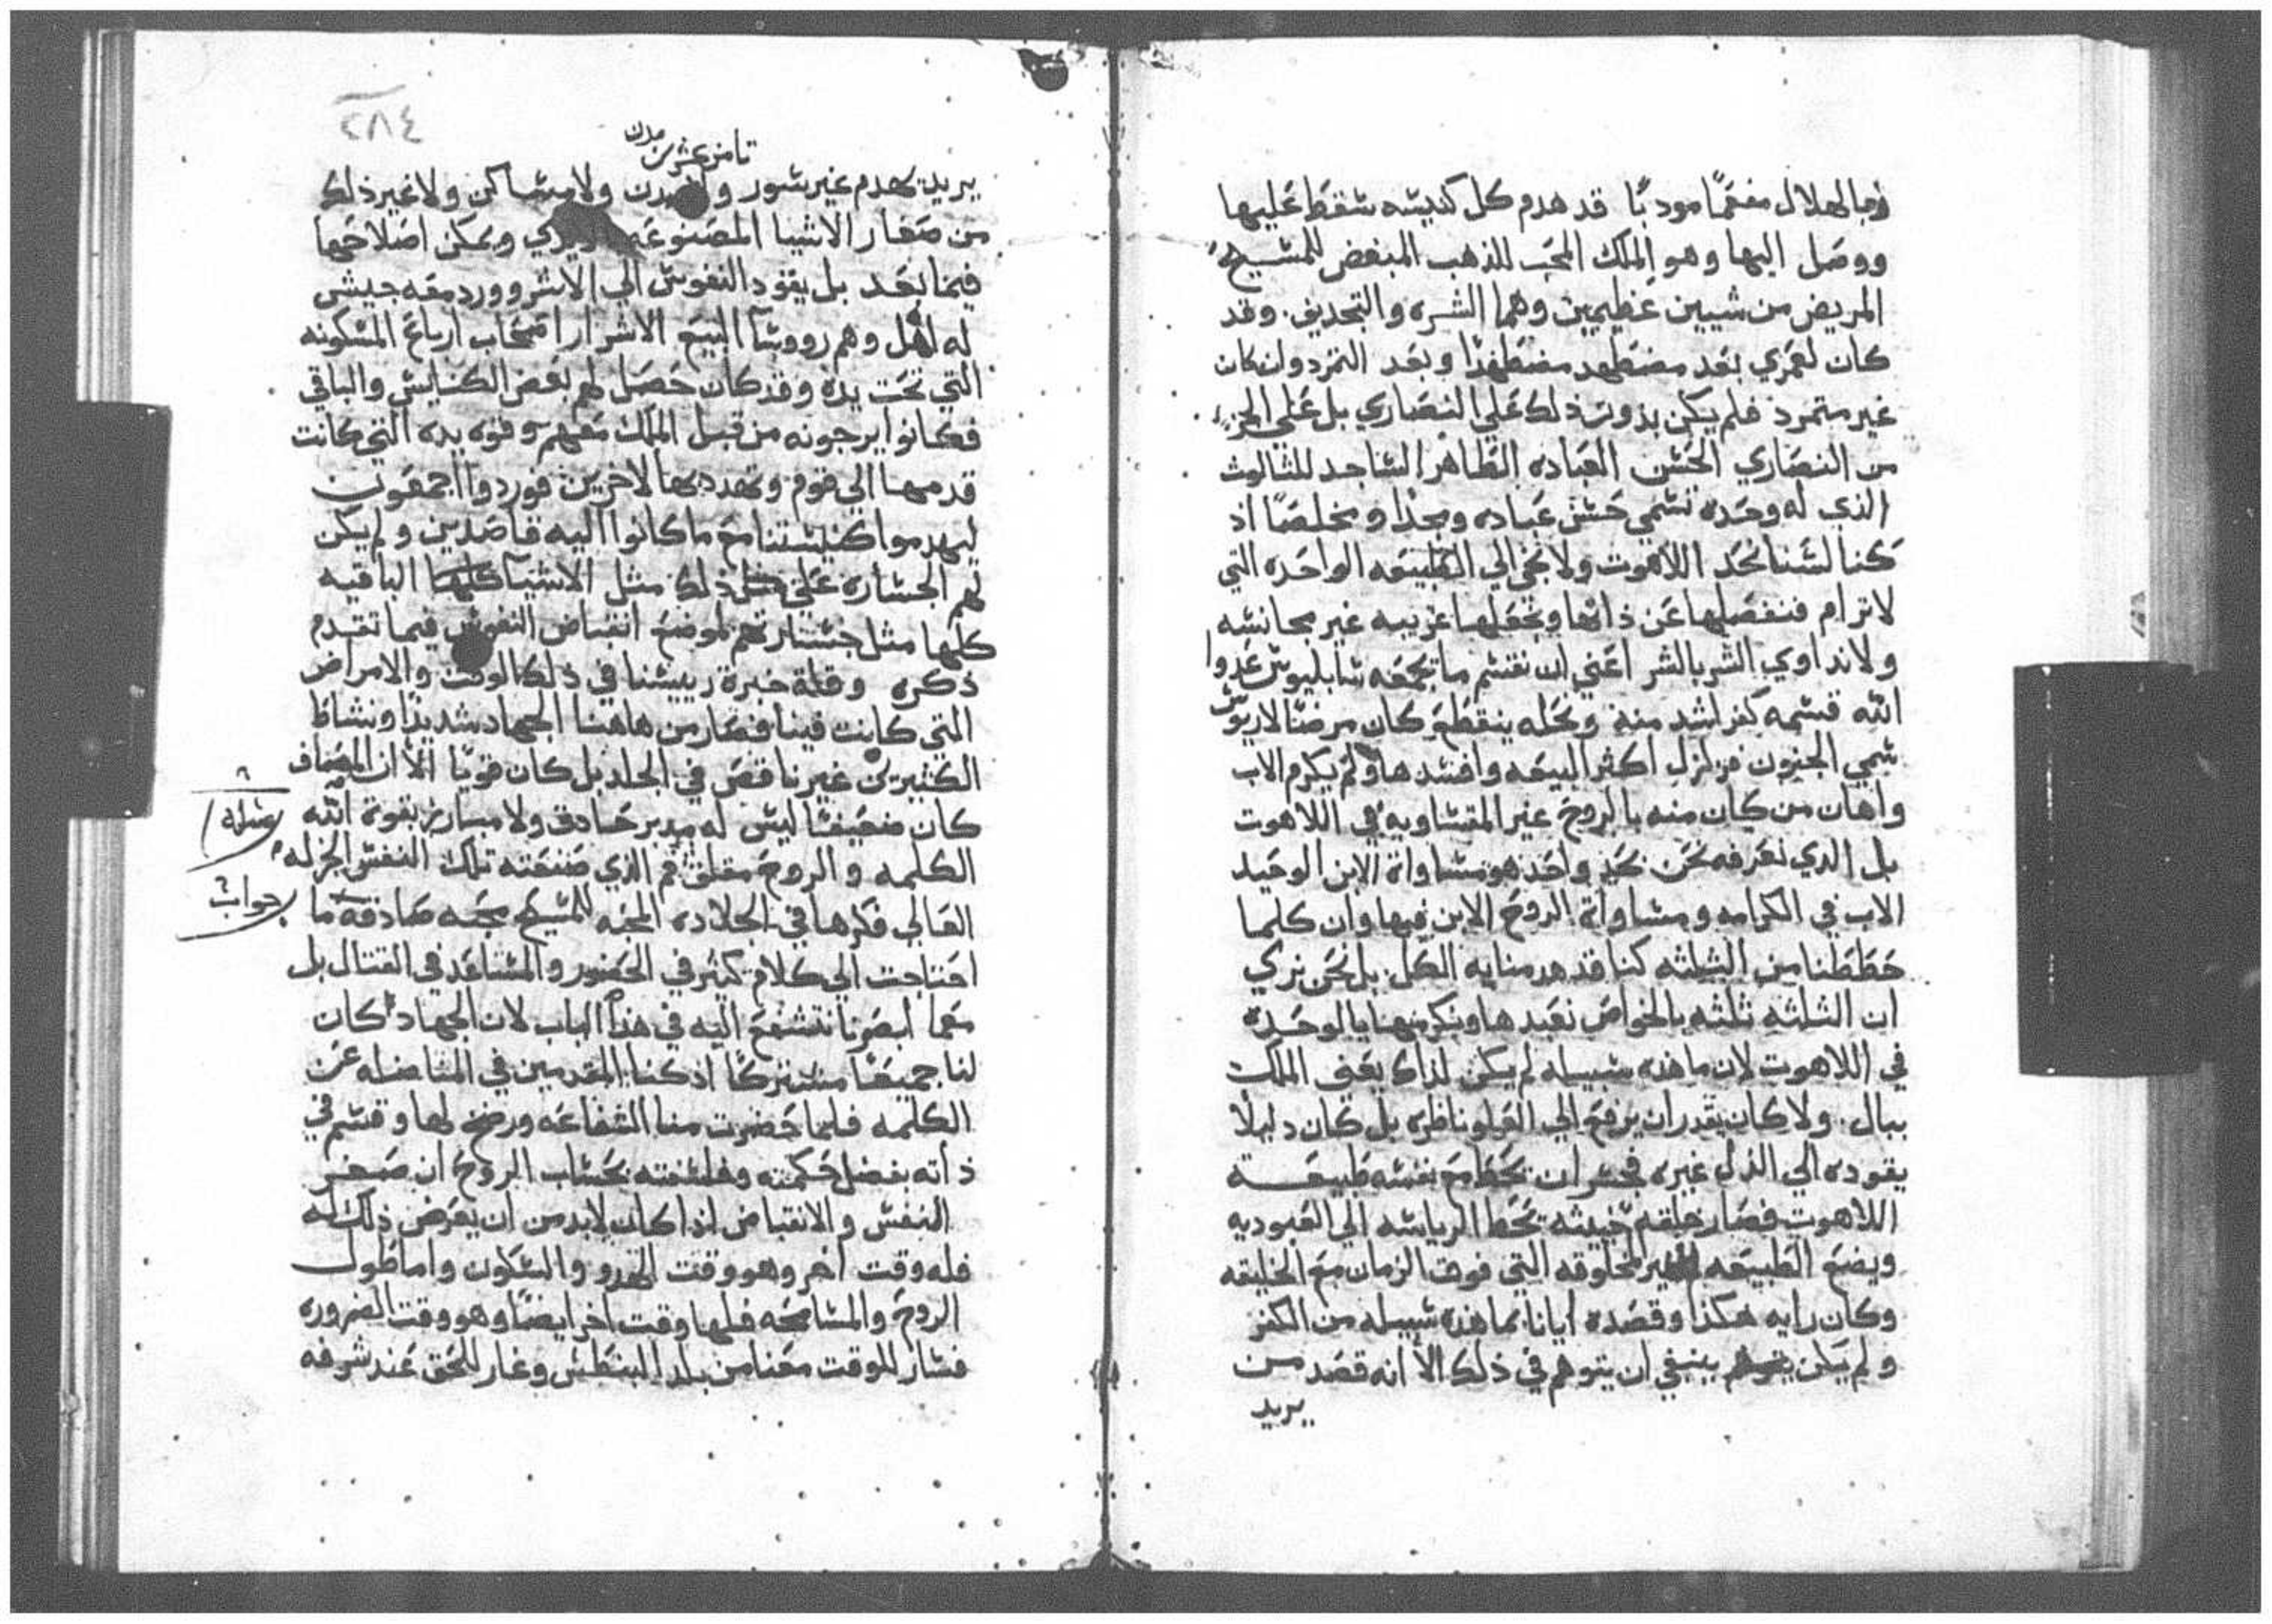 وبالهلال مفعمًا موديًا قد هدم كل كنيسه سقط عليها
ووصل اليها وهو الملك المحب للذهب المبغض للمسيح
المريض من شيين عظيمين وهما الشره والتجديف. وقد
كان لعمري بعد مضطهد مضطهدًا وبعد التمرد وان كان
غير متمرد فلم يكن بدون ذلك علي النصاري بل علي الجزء
من النصاري الحسن العباده الطاهر الساجد للثالوث
الذي له وحده نسمي حسن عباده ومجدًا ومخلصًا اذ
كنا لسنا نحد اللاهوت ولا نخجي الي الطبيعه الواحده التي
لا ترام فنفصلها عن ذاتها ونجعلها غريبه غير مجانسه
ولا نداوي الشر بالشر اعني ان نقسم ما تجمعه سابليوس عدوا
الله قسمه كفر اشد منه ونحله ينقطع كان مرضًا لاريوس
سمي الجنون فزلزل اكثر البيعه وافسدها ولم يكرم الاب
واهان من كان منه بالروح غير المتساويه في اللاهوت
بل الذي نعرفه نحن مجد واحد هو مساواة الابن الوحيد
الاب في الكرامه ومساواة الروح الابن فيها وان كلما
حططنا من الثلثه كنا قد هدمنا به الكل. بل نحن نري
ان الثلثه ثلثه بالخواص نعبدها ونكرمها بالوحده
في اللاهوت لان ما هذه سبيله لم يكن لذاك يعني الملك
ببال. ولا كان يقدر ان يرفع الي العلو ناظره بل كان دليلًا
يقوده الي الذل غيره فجسر ان يحط مع نفسه طبيعة
اللاهوت فصار خلقه خبيثه تحط الرياسه الي العبوديه
ويضع الطبيعه الغير مخلوقه التي فوق الزمان مع الخليقه
وكان رايه هكذا وقصده ايانا بما هذه سبيله من الكفر
ولم يكن ينبغي ان يتوهم في ذلك الا انه قصد من
يريد
٢٨٤
ثامن عشرين
مدن
يريد يهدم غير سور و ولا مساكن ولا غير ذلك
من صغار الاشيا المصنوعه ويمكن اصلاحها
فيما بعد بل يقود النفوس الي الاشر وورد معه جيش
له اهل وهم رووسا البيع الاشرار اصحاب ارباع المسكونه
التي تحت يده وقد كان حصل لهم بعض الكنايس والباقي
فكانوا يرجونه من قبل الملك معهم وقوه يده التي كانت
قدمها الي قوم وتهدد بها لاخرين فوردوا اجمعون
ليهدموا كنيستنا مع ما كانوا اليه قاصدين ولم يكن
لهم الجساره علي ذلك مثل الاشيا كلها الباقيه
كلها مثل جسارتهم لموضع انقباض النفوس فيما تقدم
ذكره وقلة خبرة رييسنا في ذلك الوقت والامراض
التي كانت فينا فصار من هاهنا الجهاد شديدًا ونشاط
الكثيرين غير ناقص في الجلد بل كان قويًا الا ان المصاف
كان ضعيفًا ليس له مدبر حاذق ولا مبارز بقوة الله
مسله
الكلمه والروح مقلق فم الذي صنعته تلك النفس الجزله
جواب
العالي فكرها في الجلاده المحبه للمسيح محبه صادقه ما
احتاجت الي كلام كثير في الحضور والمساعد في القتال بل
معما ابصرنا نتشفع اليه في هذا الباب لان الجهاد كان
لنا جميعًا مشتركًا اذ كنا المقدمين في المناضله عن
الكلمه فلما حضرت منا الشفاعه ورضخ لها وقسم في
ذاته بفضل حكمته وفلسفته بحساب الروح ان صغر
النفس والانقباض اذا كان لابد من ان يعرض ذلك له
فله وقت اخر وهو وقت الهدو والسكون واما طول
الروح والمسامحه فلها وقت اخر ايضًا وهو وقت الضروره
فسار للوقت معنا من بلد البنطس وغار للحق عند شرفه